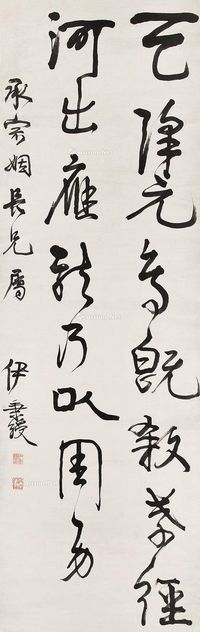 天降元鳥既敘孝經
河出應龍乃以周易
承宗姻長兄屬 伊秉綬